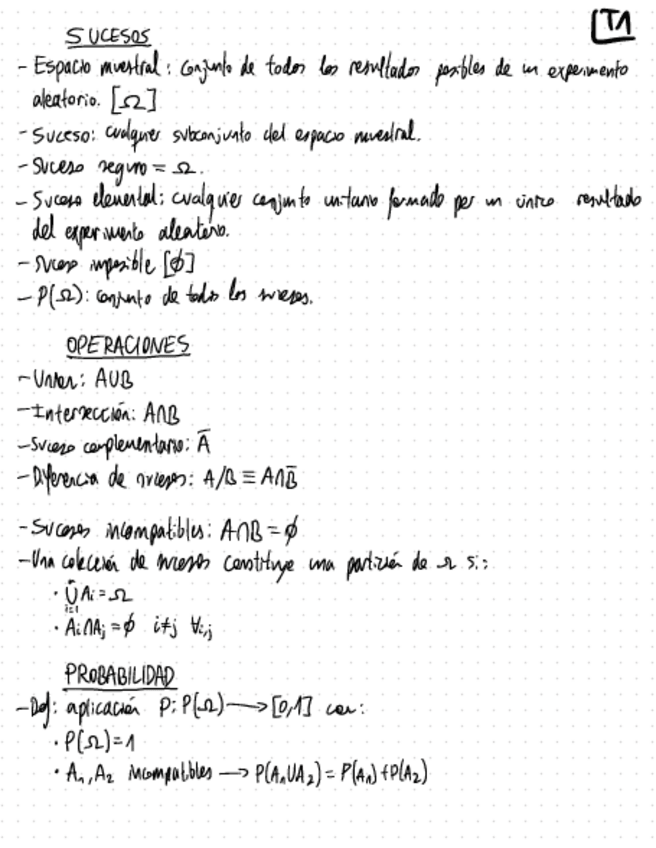 T1
SUCESOS
- Espacio muestral: conjunto de todos los resultados posibles de un experimento
aleatorio. [Ω]
- Suceso: cualquier subconjunto del espacio muestral.
- Suceso seguro = Ω.
- Suceso elemental: cualquier conjunto unitario formado por un único resultado
del experimento aleatorio.
- Suceso imposible [∅]
- P(Ω): conjunto de todos los sucesos.
OPERACIONES
- Unión: A∪B
- Intersección: A∩B
- Suceso complementario: Ā
- Diferencia de sucesos: A/B ≡ A∩B̄
- Sucesos incompatibles: A∩B = ∅
- Una colección de sucesos constituye una partición de Ω si:
· ⋃ⁿᵢ₌₁ Aᵢ = Ω
· Aᵢ∩Aⱼ = ∅ i≠j ∀i,j
PROBABILIDAD
- Def: aplicación P: P(Ω) → [0,1] con:
· P(Ω) = 1
· A₁, A₂ incompatibles → P(A₁∪A₂) = P(A₁) + P(A₂)